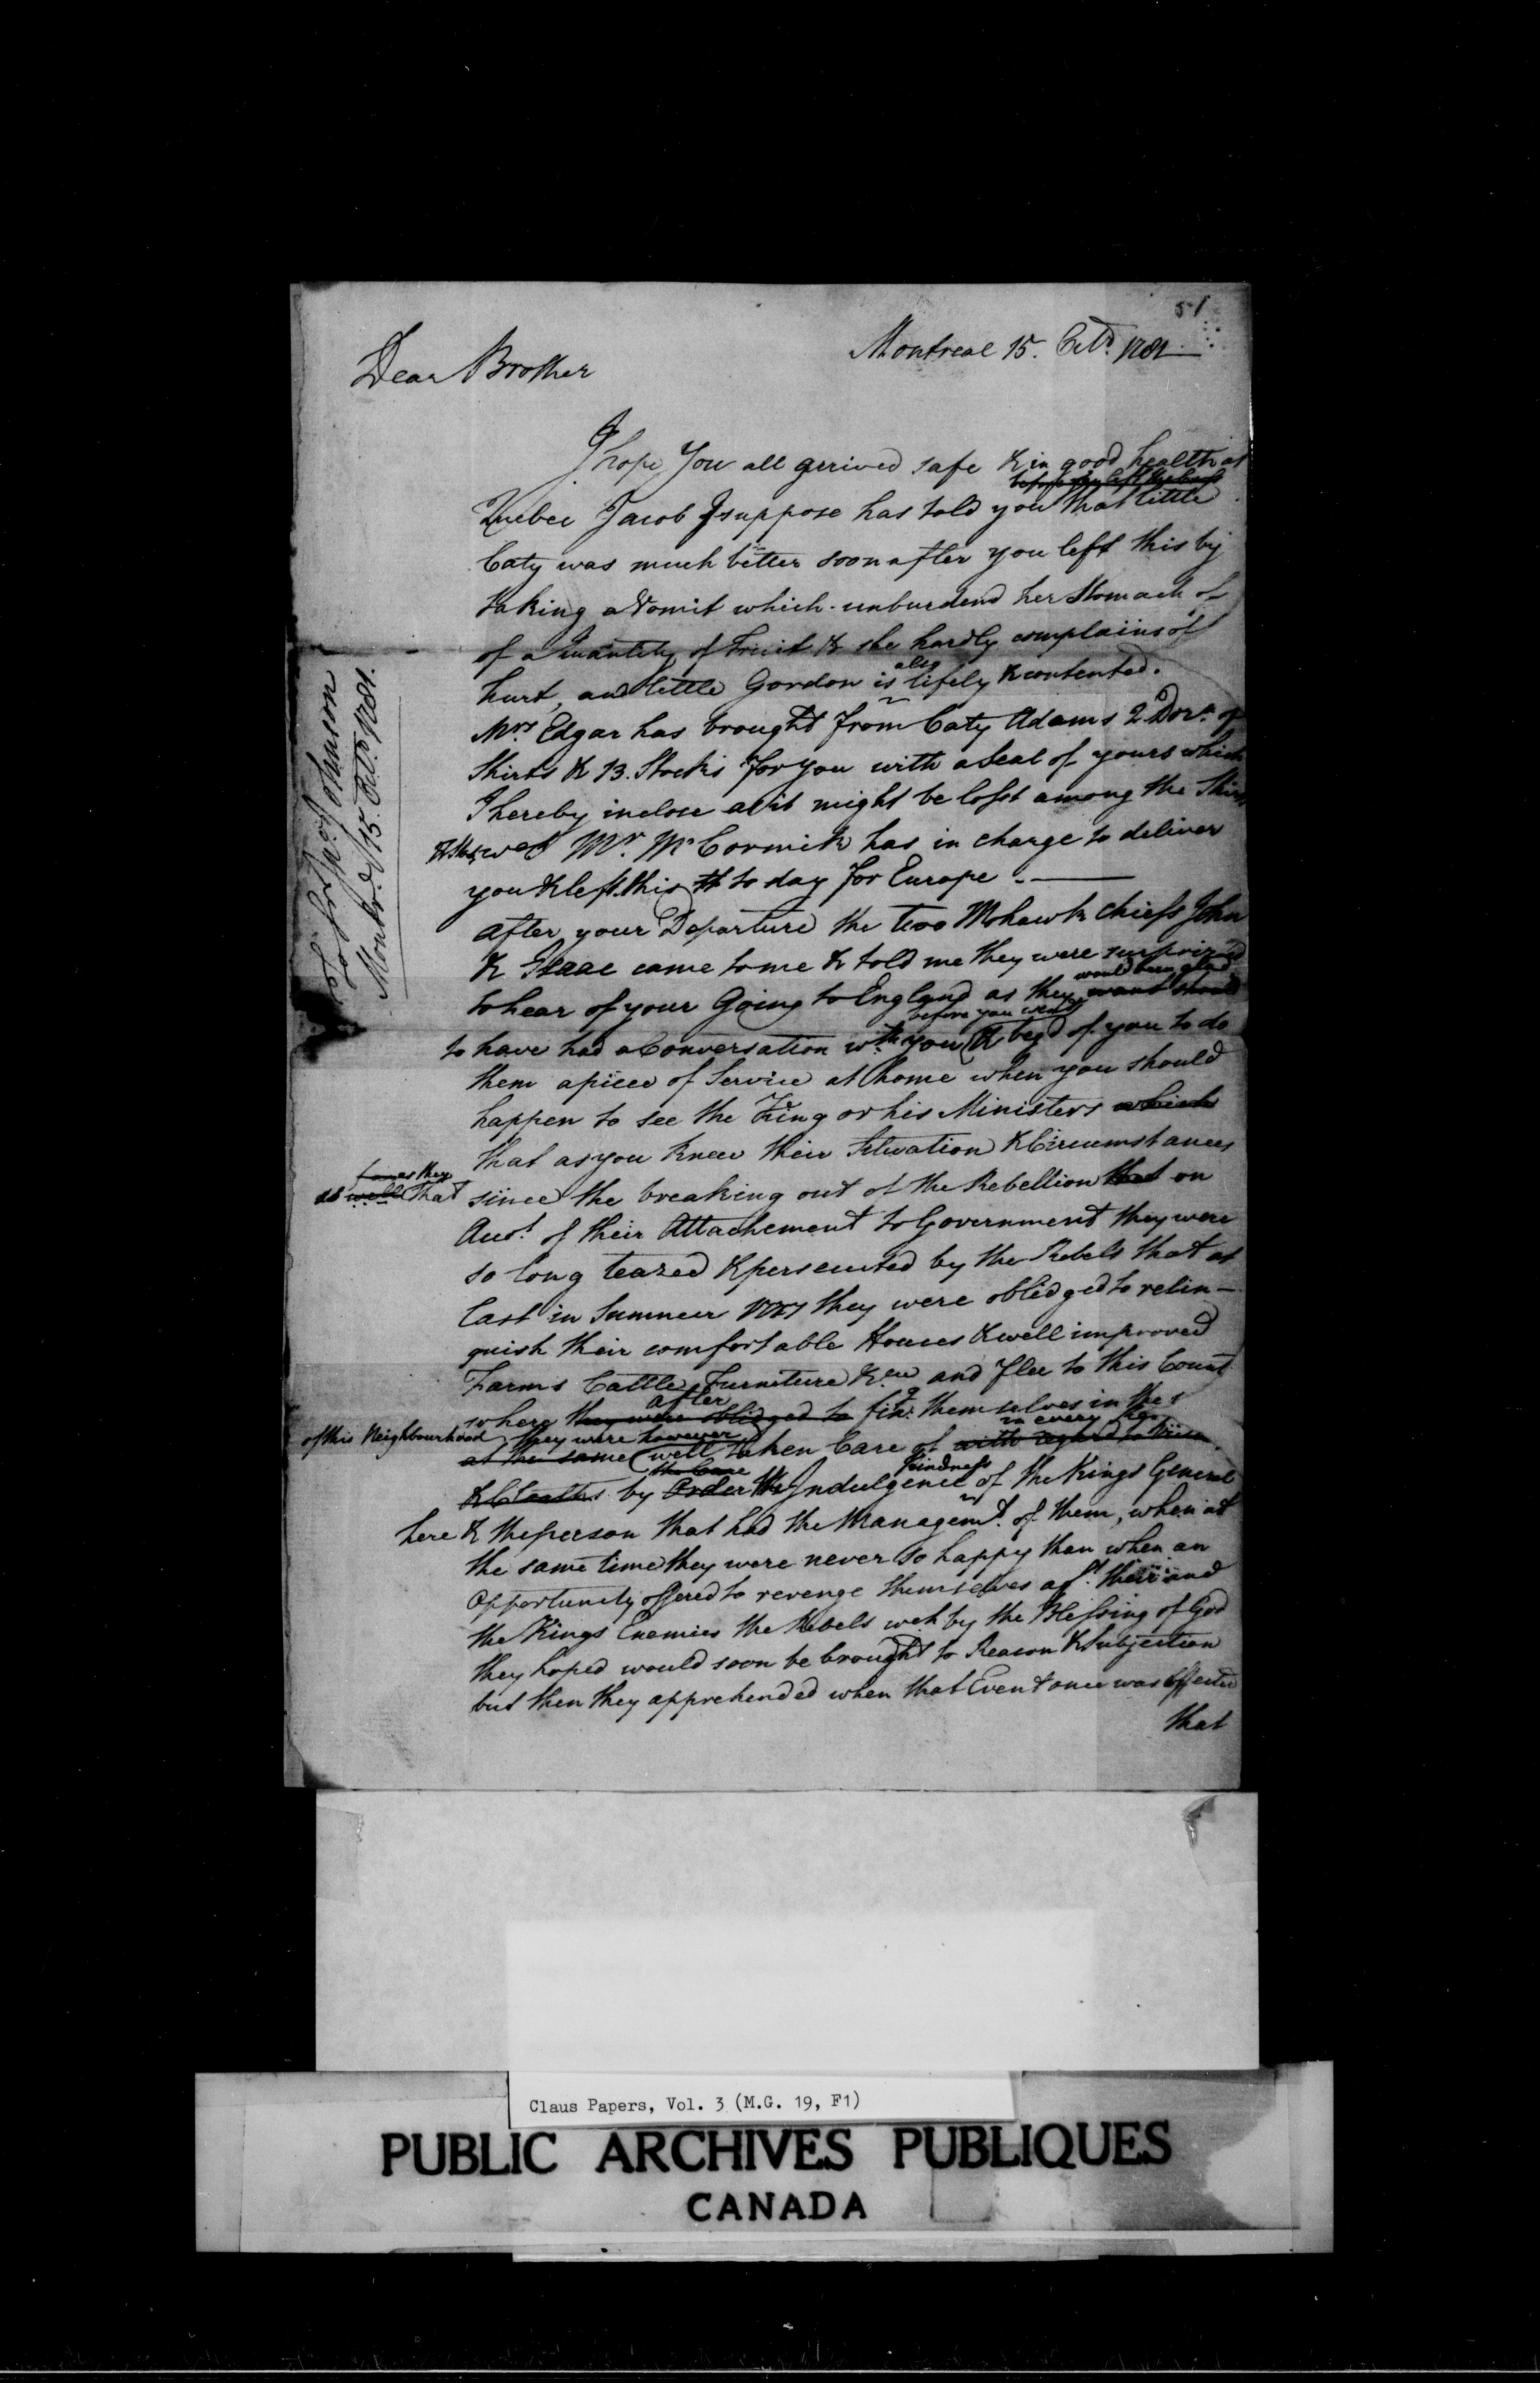 51
Montreal 15. Octr. 1781
Dear Brother
I hope You all arrived safe & in good health at
before you left
Quebec Jacob I suppose has told you that little
Caty was much better soon after you left this by
taking a Vomit which unburdend her Stomach of
of a Quantity of Fruit & she hardly complains of
hurt, and little Gordon is also lifely & contented.
Mrs Edgar has brought from Caty Adams 2 Dozn. of
Shirts & 13. Stocks for you with a Seal of yours which
I hereby inclose as it might be lost among the Shirts
& Stocks wch Mr. McCormick has in charge to deliver
you & left this to day for Europe.
After your Departure the two Mohawk chiefs John
& Isaac came to me & told me they were surprized
to hear of your Going to England as they want should would been glad
to have had a Conversation wth you before you went & begd of you to do
them a piece of Service at home when you should
happen to see the King or his Ministers which
that as you knew their Situation & Circumstances
as they
as well that since the breaking out of the Rebellion that on
Acct. of their Attachement to Government they were
so long teazed & persecuted by the Rebels that at
last in Summer 1777 they were oblidged to relin-
quish their comfortable Houses & well improved
Farms Cattle, Furniture &ca and flee to this Count
where they were oblidged to after fixg. themselves in the
of this Neighbourhood they were however
at the same well taken Care of with regard to in every
& Cloaths by Order the Care the Indulgence Kindness of the Kings General
here & the person that had the Managemt. of them, when at
the same time they were never so happy than when an
Opportunity offered to revenge themselves agst. their and
the Kings Enemies the Rebels wch by the Blessing of God
they hoped would soon be brought to Reason & Subjection
but then they apprehended when that Event once was effected
that
To Sr. Jno. Johnson
Montr. d 15. Octr. 1781.
Claus Papers, Vol. 3 (M.G. 19, F1)
PUBLIC ARCHIVES PUBLIQUES
CANADA